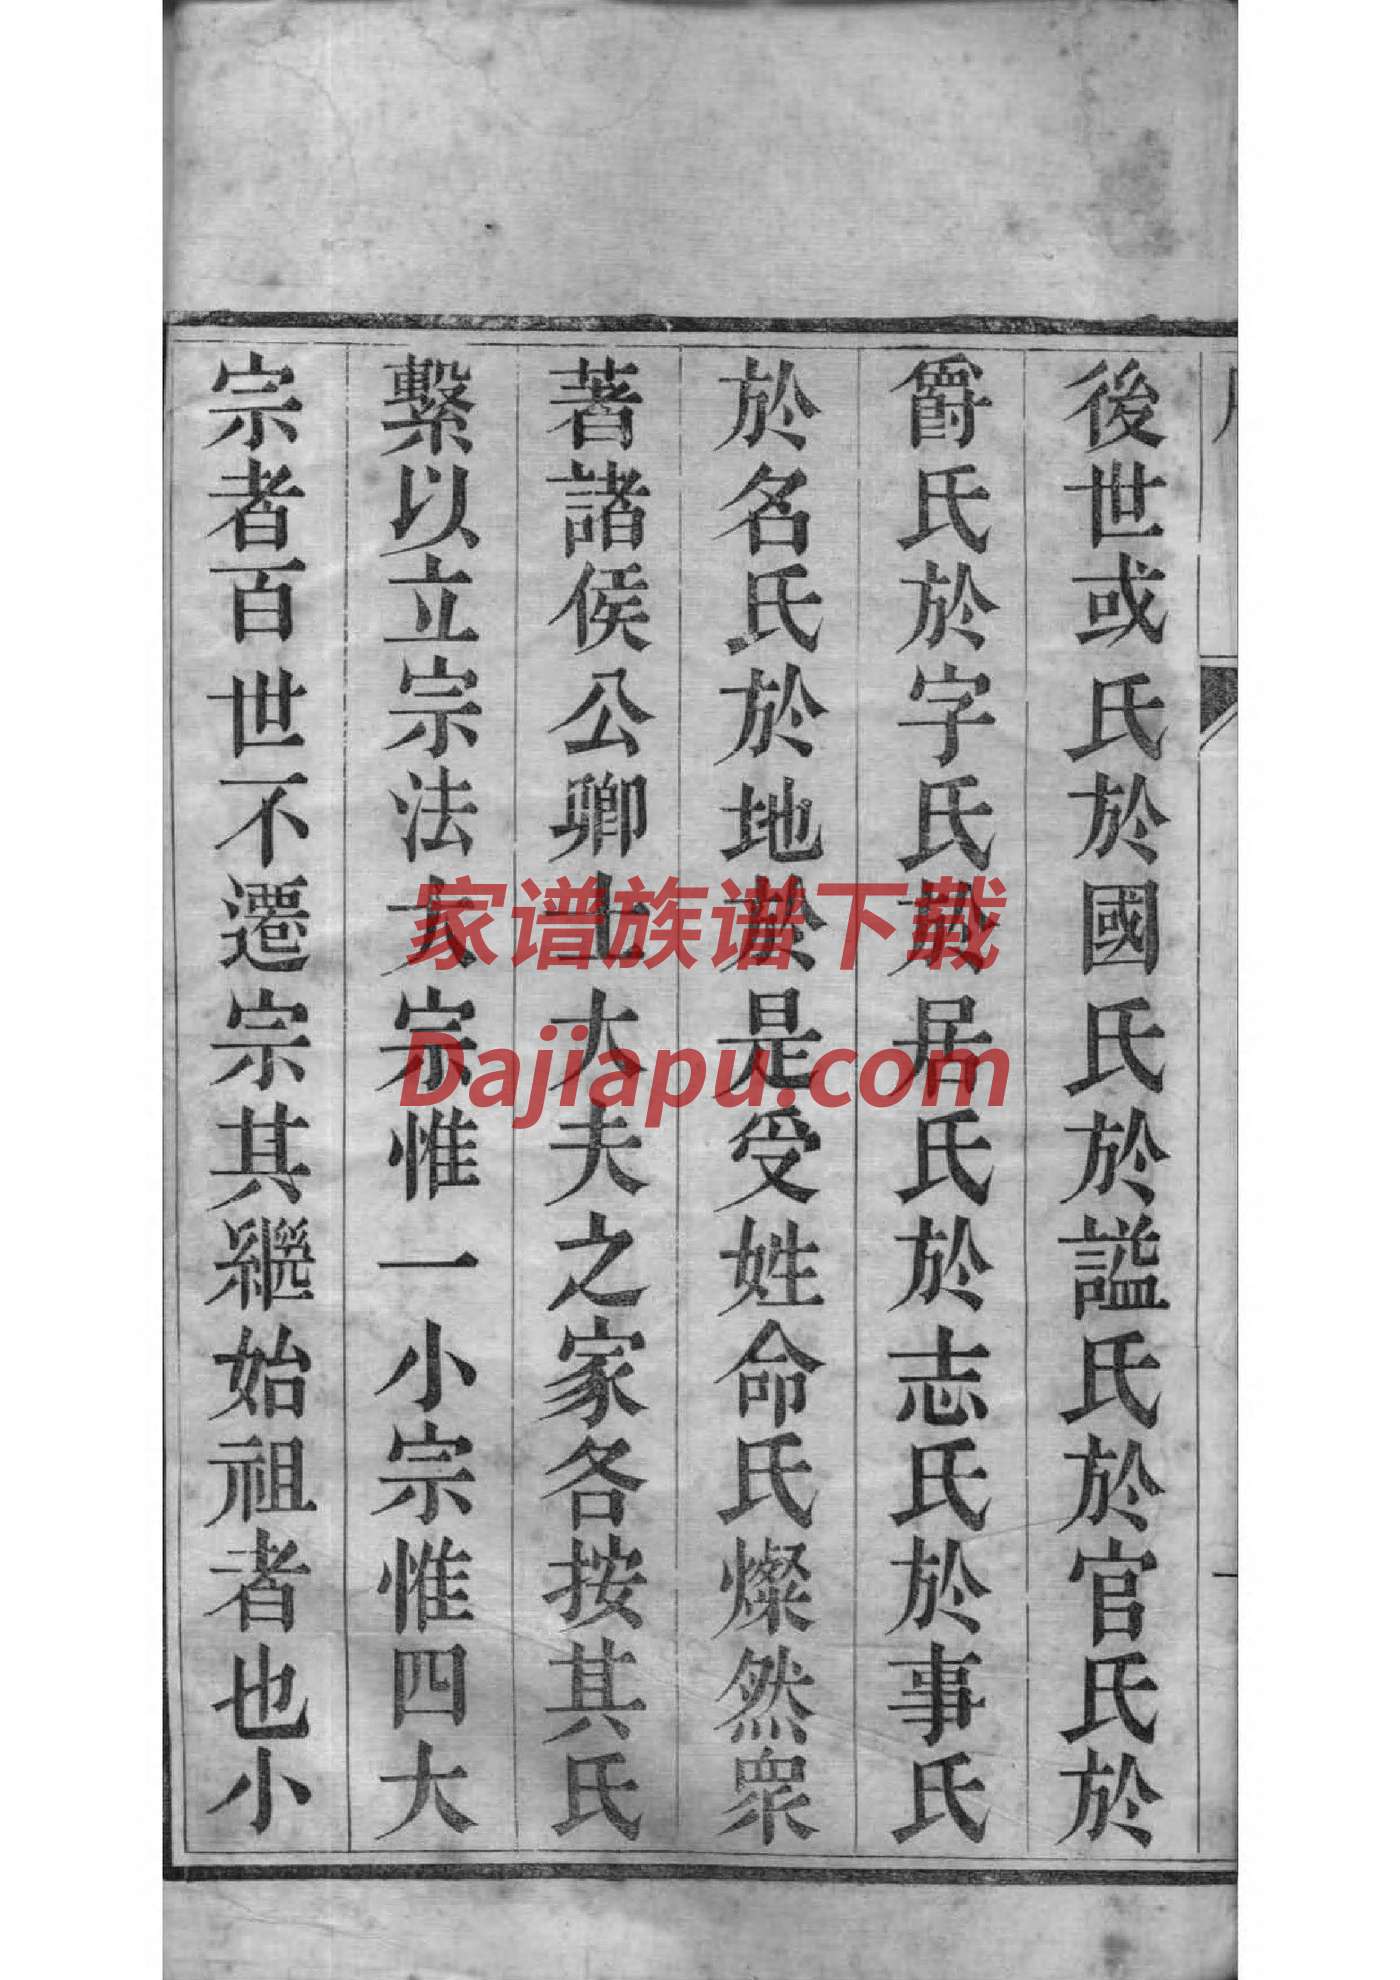 後世或氏於國氏於謚氏於官氏於
爵氏於字氏於居氏於志氏於事氏
於名氏於地於是受姓命氏燦然衆
著諸侯公卿士大夫之家各按其氏
繫以立宗法大宗惟一小宗惟四大
宗者百世不遷宗其繼始祖者也小
家谱族谱下载
Dajiapu.com